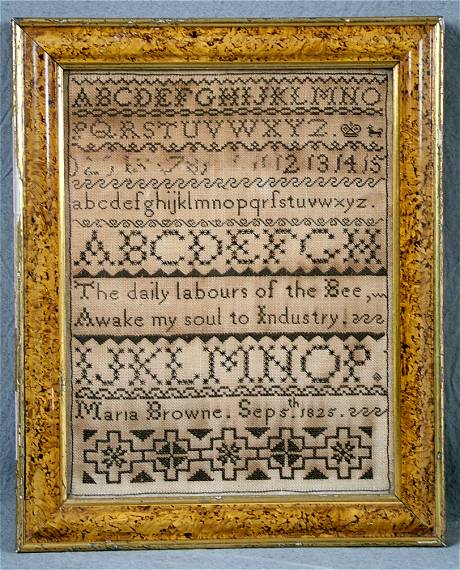 ABCDEFGHIJKLMNO
PQRSTUVWXYZ.
12 13 14 15
abcdefghijklmnopqrſstuvwxyz.
ABCDEFGH
The daily labours of the Bee,
Awake my soul to Industry.
IJKLMNOP.
Maria Browne. Sep 5th 1825.